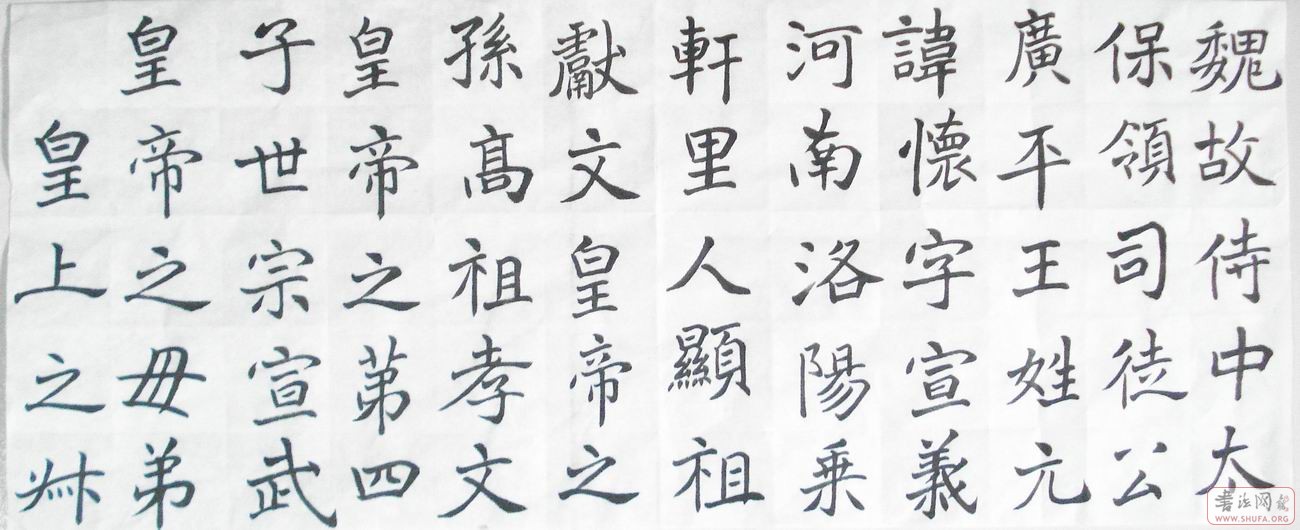 魏故侍中太
保領司徒公
廣平王姓元
諱懷字宣義
河南洛陽乗
軒里人顯祖
獻文皇帝之
孫髙祖孝文
皇帝之苐四
子世宗宣武
皇帝之毋弟
皇上之
書法网
WWW.SHUFA.ORG